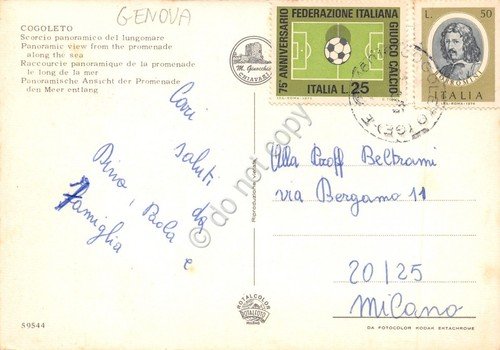 GENOVA
COGOLETO
Scorcio panoramico del lungomare
Panoramic view from the promenade
along the sea
Raccourcie panoramique de la promenade
le long de la mer
Panoramische Ansicht der Promenade
den Meer entlang
M. Ginocchio
CHIAVARI
75° ANNIVERSARIO
FEDERAZIONE ITALIANA
GIUOCO CALCIO
ITALIA L. 25
L. 50
ITALIA
Cari saluti da
Dino, Paola e
Famiglia
Riproduzione vietata
Alla Proff Beltrami
via Bergamo 11
20125
Milano
© do not copy
ROTALCOLOR
ROTALCOLOR
MILANO
S9544
DA FOTOCOLOR KODAK EKTACHROME